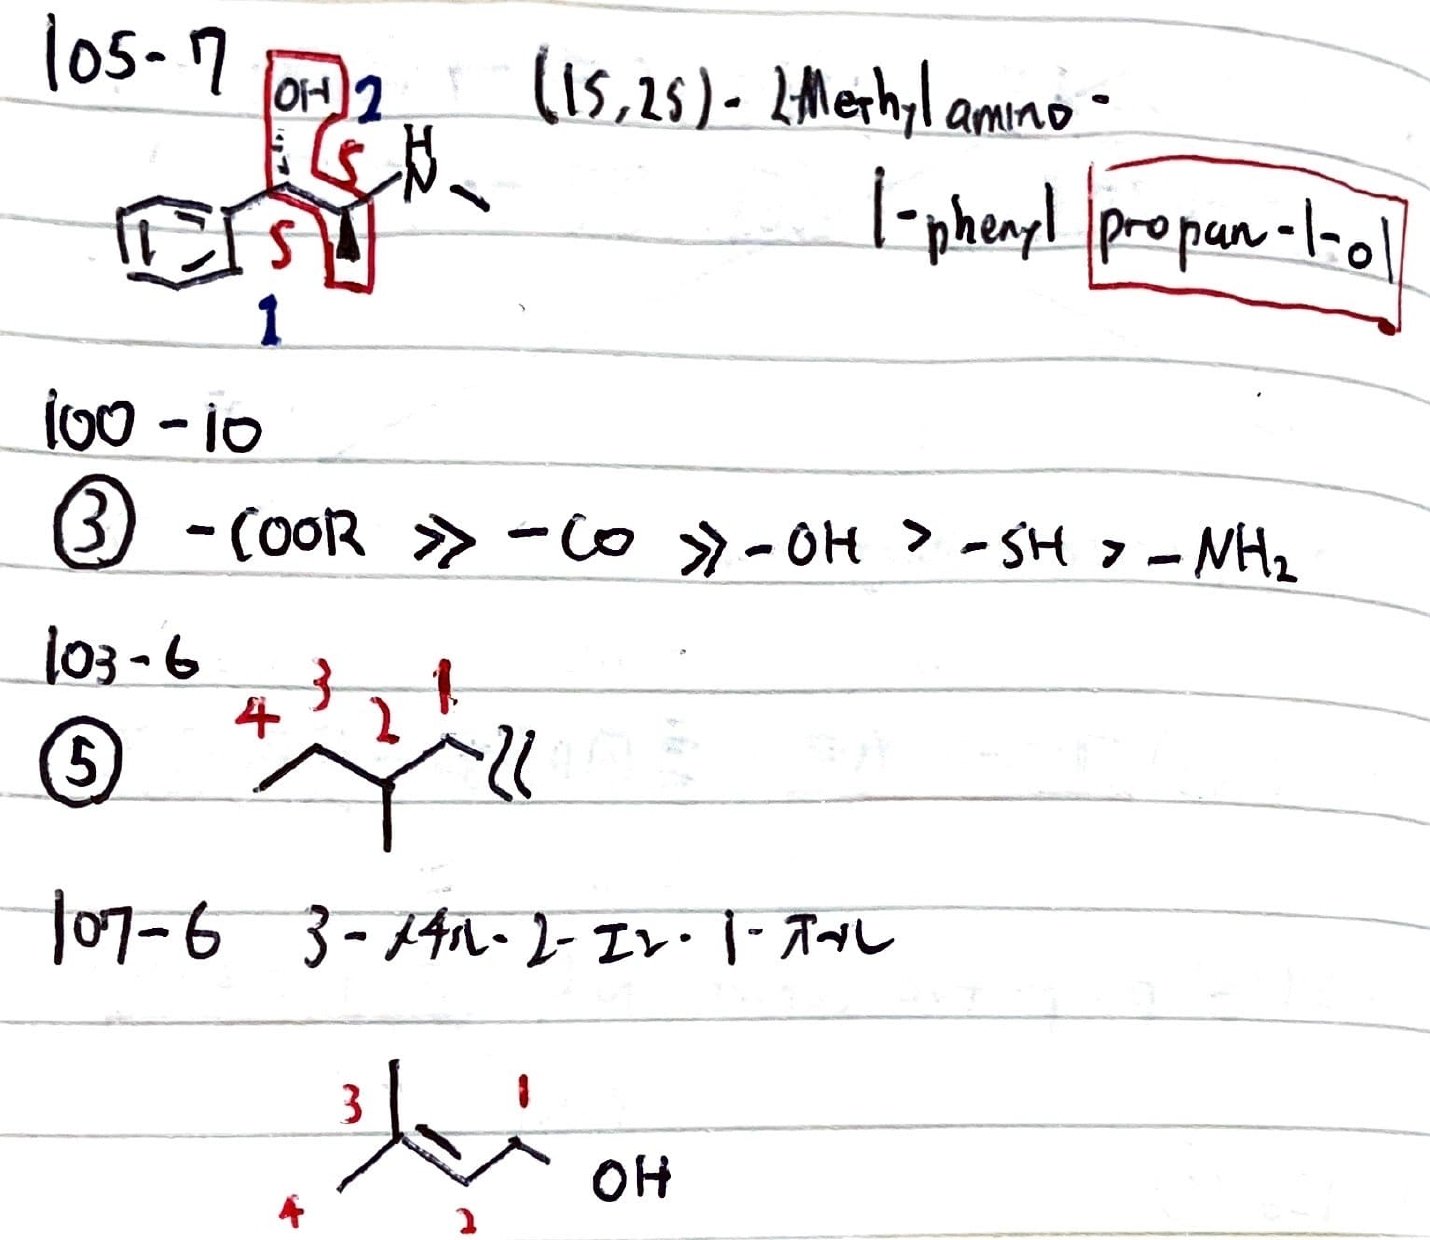 105-7
OH 2
S
H
N
S
1
(1S,2S)-2Methylamino-
1-phenyl propan-1-ol
100-10
③ -COOR ≫ -CO ≫ -OH > -SH > -NH₂
103-6
4 3 2 1
⑤
107-6 3-メチル-2-エン-1-オール
3 1
OH
4 2